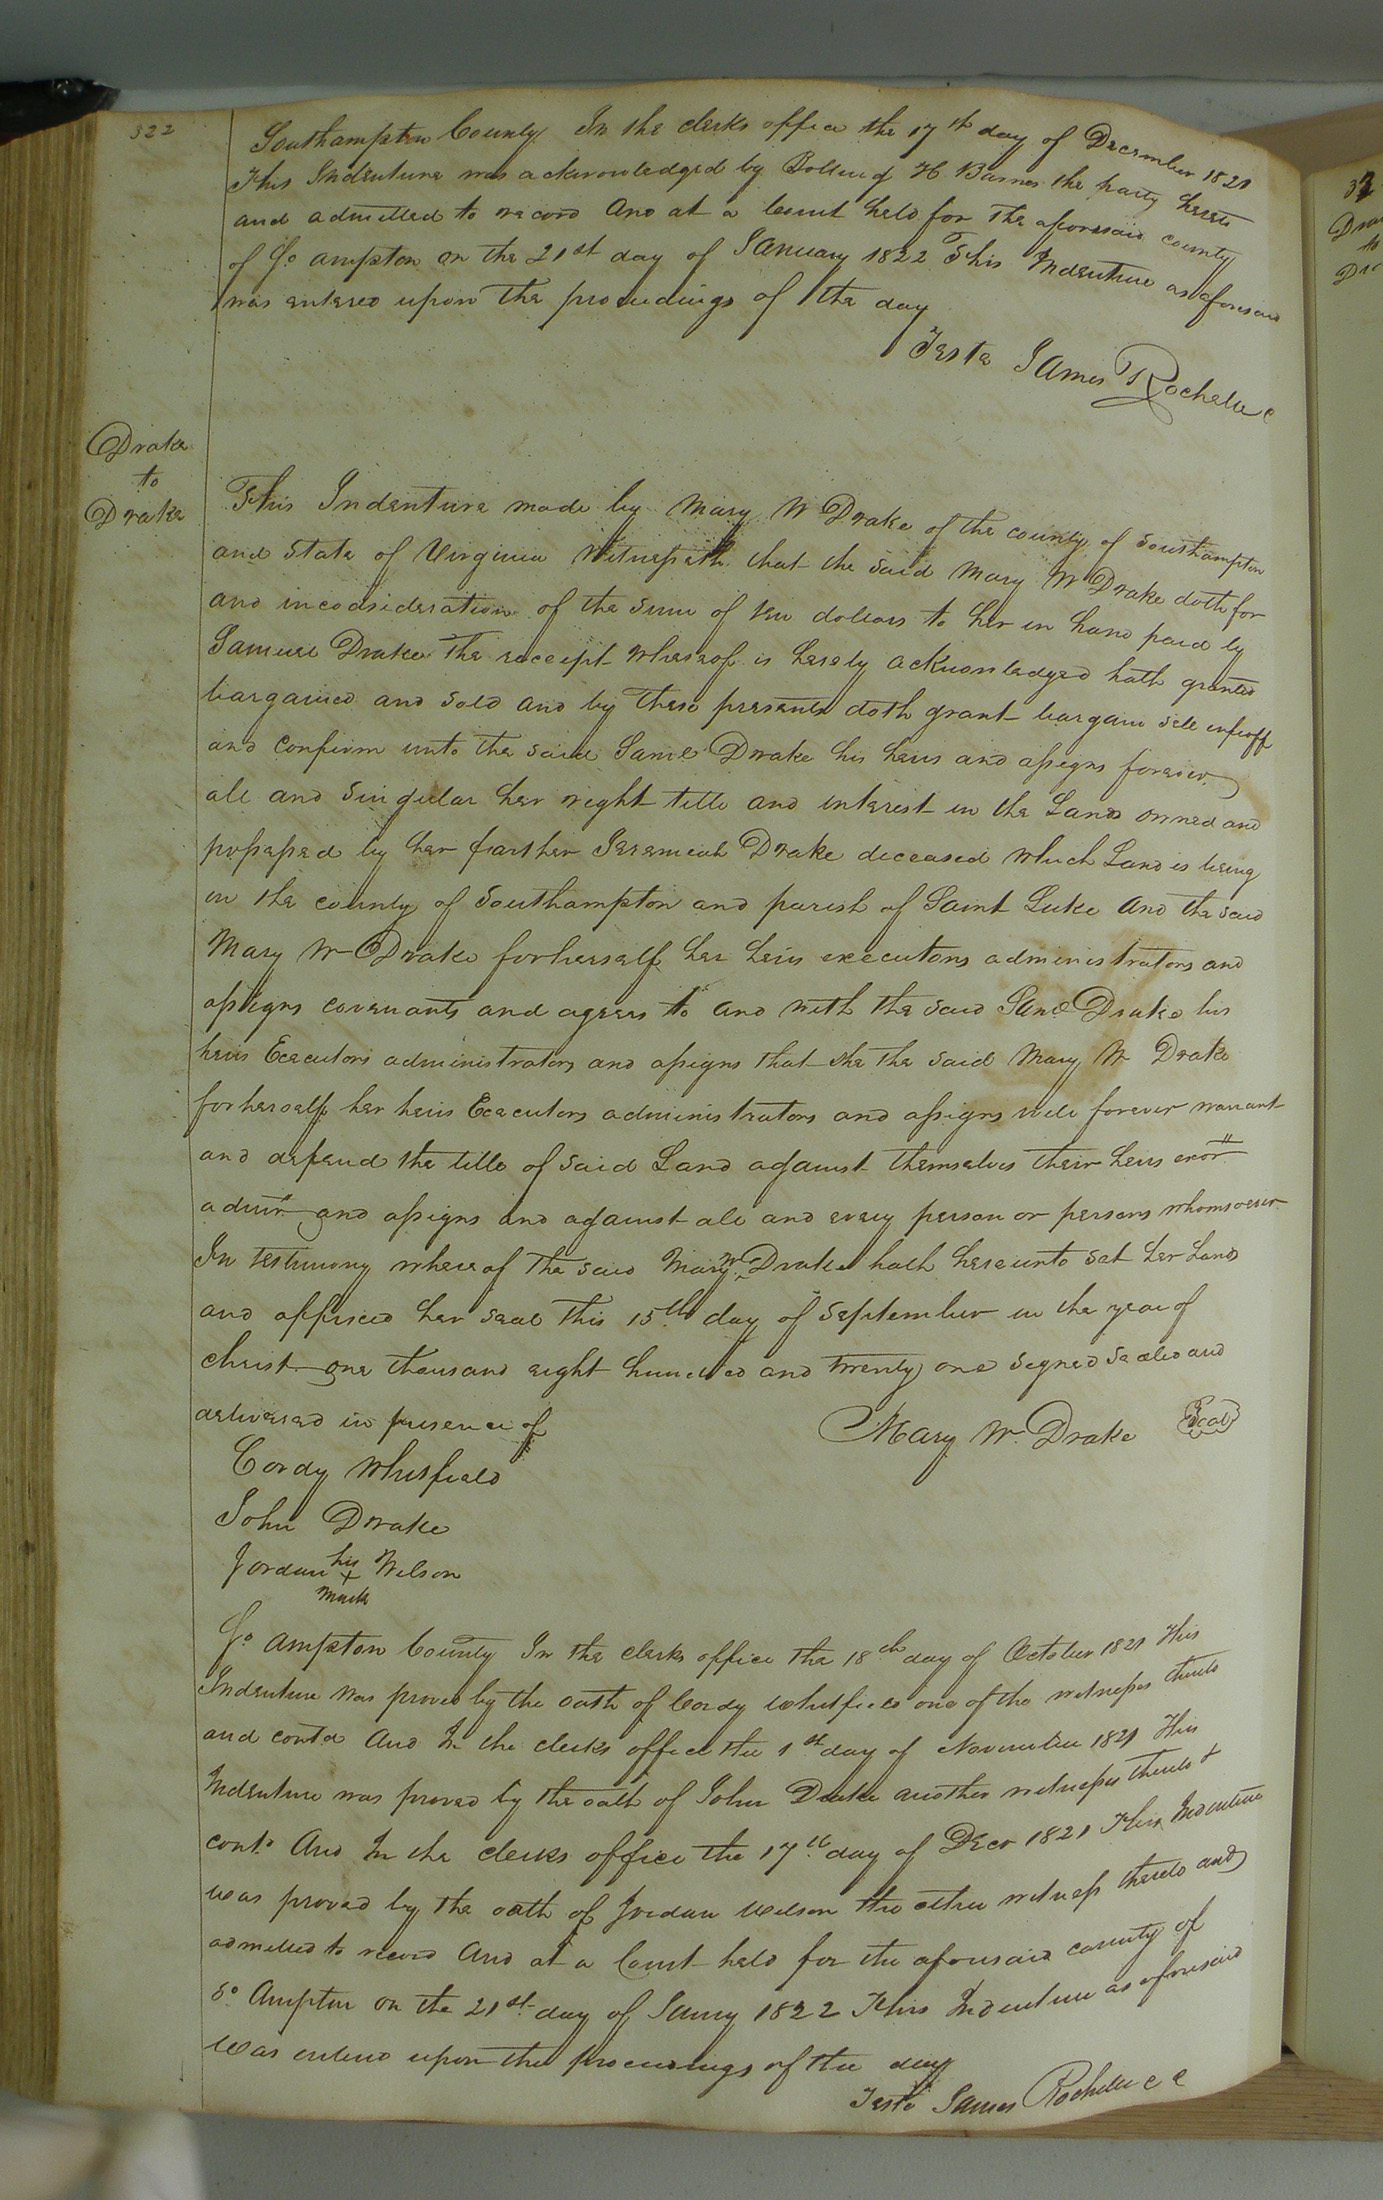 322
Southampton County In the clerks office the 17th day of December 1821
This Indenture was acknowledged by Bolling H. Barnes the party hereto
and admitted to record And at a Court held for the aforesaid county
of So ampton on the 21st day of January 1822 This Indenture as aforesaid
was entered upon the proceedings of the day
Teste James Rochelle C
Drake
to
Drake
This Indenture made by Mary W Drake of the county of Southampton
and State of Virginia Witnesseth that the said Mary W Drake doth for
and inconsideration of the sum of ten dollars to her in hand paid by
Samuel Drake the receipt whereof is hereby acknowledged hath granted
bargained and sold and by these presents doth grant bargain sell enfeoff
and confirm unto the said Saml Drake his heirs and assigns forever
all and singular her right title and interest in the Land owned and
possessed by her farther Jeremiah Drake deceased which Land is being
in the county of Southampton and parish of Saint Luke And the said
Mary W Drake forherself her heirs executors administrators and
assigns covenants and agrees to and with the said Saml Drake his
heirs Executors administrators and assigns that she the said Mary W Drake
forherself her heirs Executors administrators and assigns will forever warrant
and defend the title of said Land against themselves their heirs exors
admrs and assigns and against all and every person or persons whomsoever
In testimony whereof the said Mary W Drake hath hereunto set her hand
and affixed her seal this 15th day of September in the year of
Christ one thousand eight hundred and twenty one signed sealed and
delivered in presence of
Mary W. Drake Seal
Cordy Whitfield
John Drake
Jordan his x mark Wilson
So ampton County In the clerks office the 18th day of October 1821 This
Indenture was proved by the oath of Cordy Whitfield one of the witnesses thereto
and contd And In the clerks office the 1st day of November 1821 This
Indenture was proved by the oath of John Drake another witness thereto &
contd And In the clerks office the 17th day of Decr 1821 This Indenture
was proved by the oath of Jordan Wilson the other witness thereto and
admitted to record And at a Court held for the aforesaid county of
So Ampton on the 21st day of Janry 1822 This Indenture as aforesaid
was entered upon the proceedings of the day
Teste James Rochelle C C
Dra
to